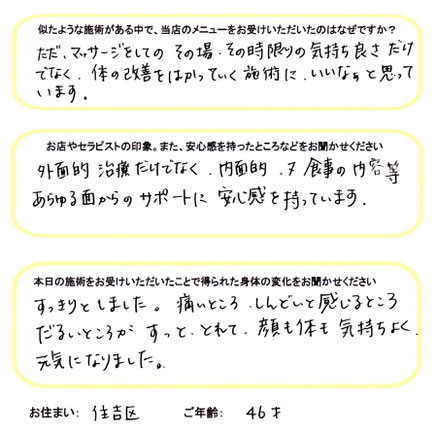 似たような施術がある中で、当店のメニューをお受けいただいたのはなぜですか？
ただ、マッサージをしての その場・その時限りの気持ち良さだけ
でなく、体の改善をはかっていく施術に、いいなぁと思って
います。
お店やセラピストの印象。また、安心感を持ったところなどをお聞かせください
外面的 治療だけでなく、内面的、又 食事の内容等
あらゆる面からのサポートに 安心感を持っています。
本日の施術をお受けいただいたことで得られた身体の変化をお聞かせください
すっきりとしました。痛いところ、しんどいと感じるところ
だるいところが すっと、とれて、顔も体も気持ちよく
元気になりました。
お住まい： 住吉区 ご年齢： 46才